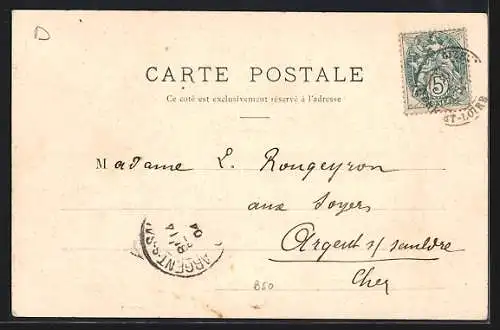 D
CARTE POSTALE
Ce coté est exclusivement réservé à l'adresse
5
ET-LOIRE
Madame L. Rougeyron
aux Foyers
Argent s/ sauldre
Cher
ARGENT-S-SAS
04
B50